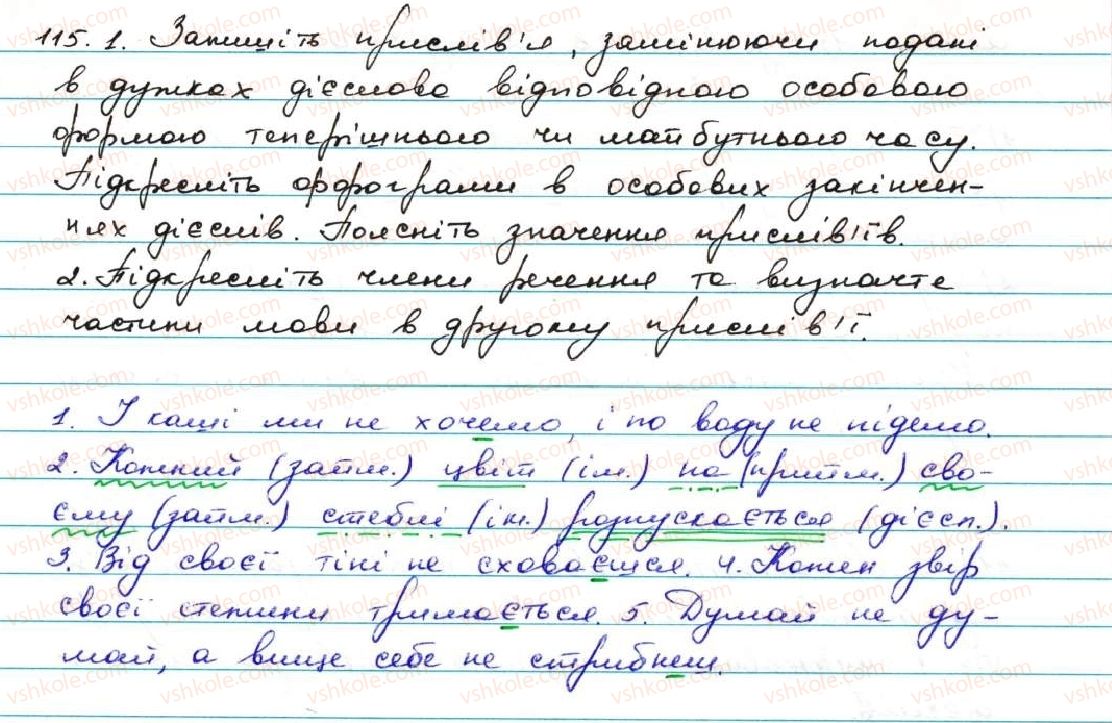 115. 1. Запишіть прислів'я, замінюючи подані
в дужках дієслова відповідною особовою
формою теперішнього чи майбутнього часу.
Підкресліть орфограми в особових закінчен-
нях дієслів. Поясніть значення прислів'їв.
2. Підкресліть члени речення та визначте
частини мови в другому прислів'ї.
1. І каші ми не хочемо, і по воду не підемо.
2. Кожний (займ.) цвіт (ім.) на (прийм.) сво-
єму (займ.) стеблі (ім.) розпускається (дієсл.).
3. Від своєї тіні не сховаєшся. 4. Кожен звір
своєї стежини тримається. 5. Думай не ду-
май, а вище себе не стрибнеш.